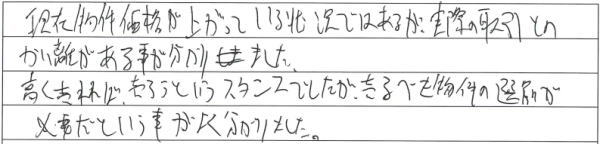 現在物件価格が上がっている状況ではあるが、実際の取引との
かい離がある事が分かりました。
高く売れれば、売ろうというスタンスでしたが、売るべき物件の選別が
必要だという事がよく分かりました。